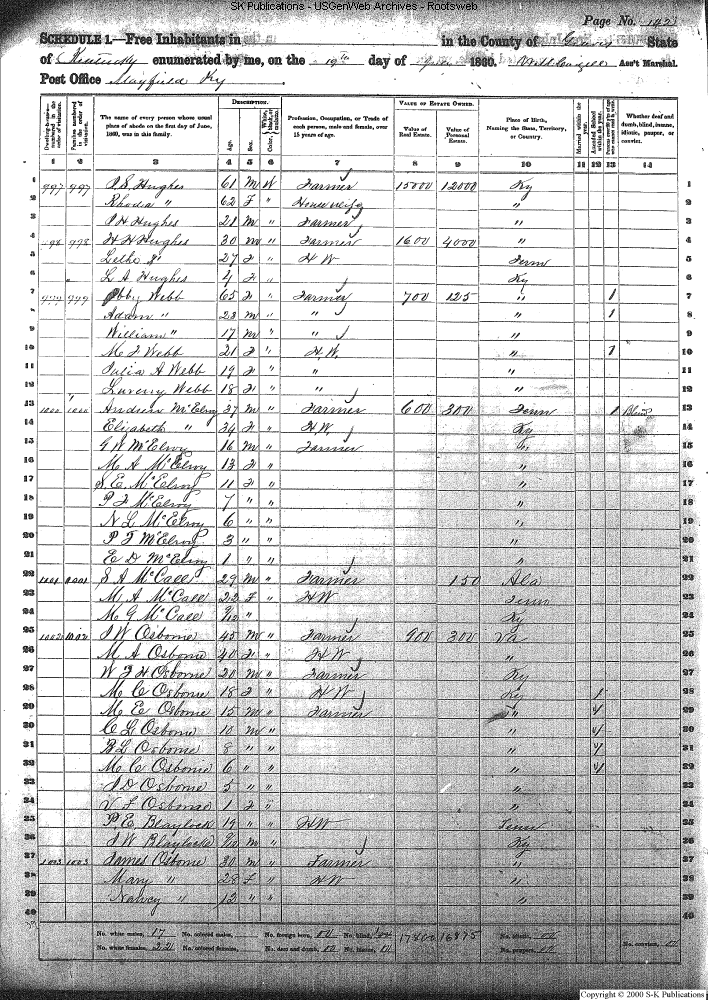 SK Publications - USGenWeb Archives - Rootsweb
Page No. 142
SCHEDULE 1.—Free Inhabitants in in the County of Graves State
of Kentucky enumerated by me, on the 19th day of 1860. Ass't Marshal.
Post Office Mayfield Ky
Dwelling-houses numbered in the order of visitation. Families numbered in the order of visitation. The name of every person whose usual place of abode on the first day of June, 1860, was in this family. DESCRIPTION. Age. Sex. Color, Profession, Occupation, or Trade of each person, male and female, over 15 years of age. VALUE OF ESTATE OWNED. Value of Real Estate. Value of Personal Estate. Place of Birth, Naming the State, Territory, or Country. Married within the year. Attended School within the year. Whether deaf and dumb, blind, insane, idiotic, pauper, or convict.
1 2 3 4 5 6 7 8 9 10 11 12 13 14
1 997 997 P. S. Hughes 61 M W Farmer 15000 12000 Ky 1
2 Rhoda " 62 F " Housewife " 2
3 P H Hughes 21 M " Farmer " 3
4 998 998 H H Hughes 30 M " Farmer 1600 4000 " 4
5 27 F " H W Tenn 5
6 L A Hughes 4 F " Ky 6
7 999 999 Webb 65 F " Farmer 700 125 " 1 7
8 Adam " 23 M " " " 1 8
9 William " 17 M " " " 9
10 M F Webb 21 F " H.W. " 1 10
11 Julia A Webb 19 F " " " 11
12 Webb 18 F " " " 12
13 1000 1000 Andrew McElroy 37 M " Farmer 600 300 Tenn 1 Blind 13
14 Elizabeth " 34 F " H.W. Ky 14
15 G W McElroy 16 M " Farmer " 15
16 M A McElroy 13 F " " 16
17 S E McElroy 11 F " " 17
18 P F McElroy 7 " " " 18
19 N L McElroy 6 " " " 19
20 P F McElroy 3 " " " 20
21 E D McElroy 1 " " " 21
22 1001 1001 S A McCall 29 M " Farmer 150 Ala 22
23 M A McCall 22 F " H W Tenn 23
24 M G McCall /12 " " Ky 24
25 1002 1002 J W Osborne 45 M " Farmer 900 300 Va 25
26 M A Osborne 40 F " H W " 26
27 W F H Osborne 20 M " Farmer Ky 27
28 M C Osborne 18 F " H W Ky 1 28
29 M E Osborne 15 M " Farmer " 29
30 C L Osborne 10 M " " 30
31 B L Osborne 8 " " " 31
32 M C Osborne 6 " " " 32
33 J D Osborne 5 " " " 33
34 V L Osborne 1 F " " 34
35 P E Blaylock 19 " " H W Tenn 35
36 J W Blaylock /12 M " Ky 36
37 1003 1003 James Osborne 30 M " Farmer " 37
38 Mary " 28 F " H W " 38
39 Nancy " 12 " " " 39
40 40
No. white males, 17 No. colored males, No. foreign born, No. blind, 17800 16875 No. idiotic,
No. white females, 22 No. colored females, No. deaf and dumb, No. insane, No. paupers, No. convicts,
Copyright © 2000 S-K Publications